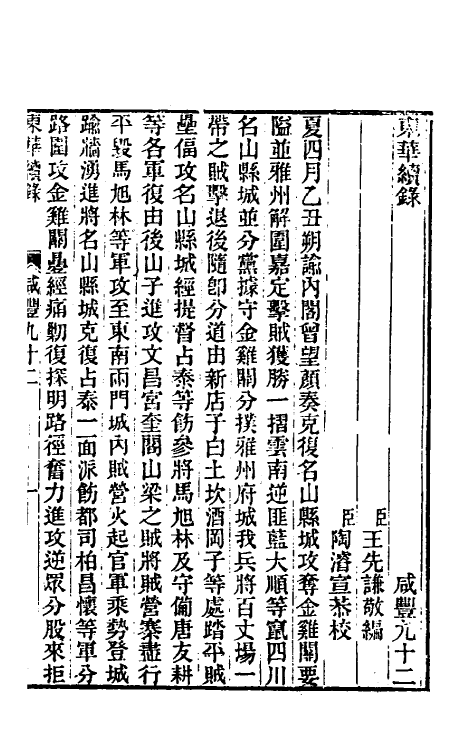 東華續錄　　咸豐九十二
臣王先謙敬編
臣陶濬宣恭校
夏四月乙丑朔諭內閣曾望顏奏克復名山縣城攻奪金雞關要
隘並雅州解圍嘉定擊賊獲勝一摺雲南逆匪藍大順等竄四川
名山縣城並分黨據守金雞關分撲雅州府城我兵將百丈場一
帶之賊擊退後隨卽分道由新店子白土坎酒岡子等處踏平賊
壘偪攻名山縣城經提督占泰等飭參將馬旭林及守備唐友耕
等各軍復由後山子進攻文昌宮奎閣山梁之賊將賊營寨盡行
平毀馬旭林等軍攻至東南兩門城內賊營火起官軍乘勢登城
踰牆湧進將名山縣城克復占泰一面派飭都司柏昌懷等軍分
路圍攻金雞關疊經痛勦復探明路徑奮力進攻逆眾分股來拒
東華續錄　咸豐九十二　一